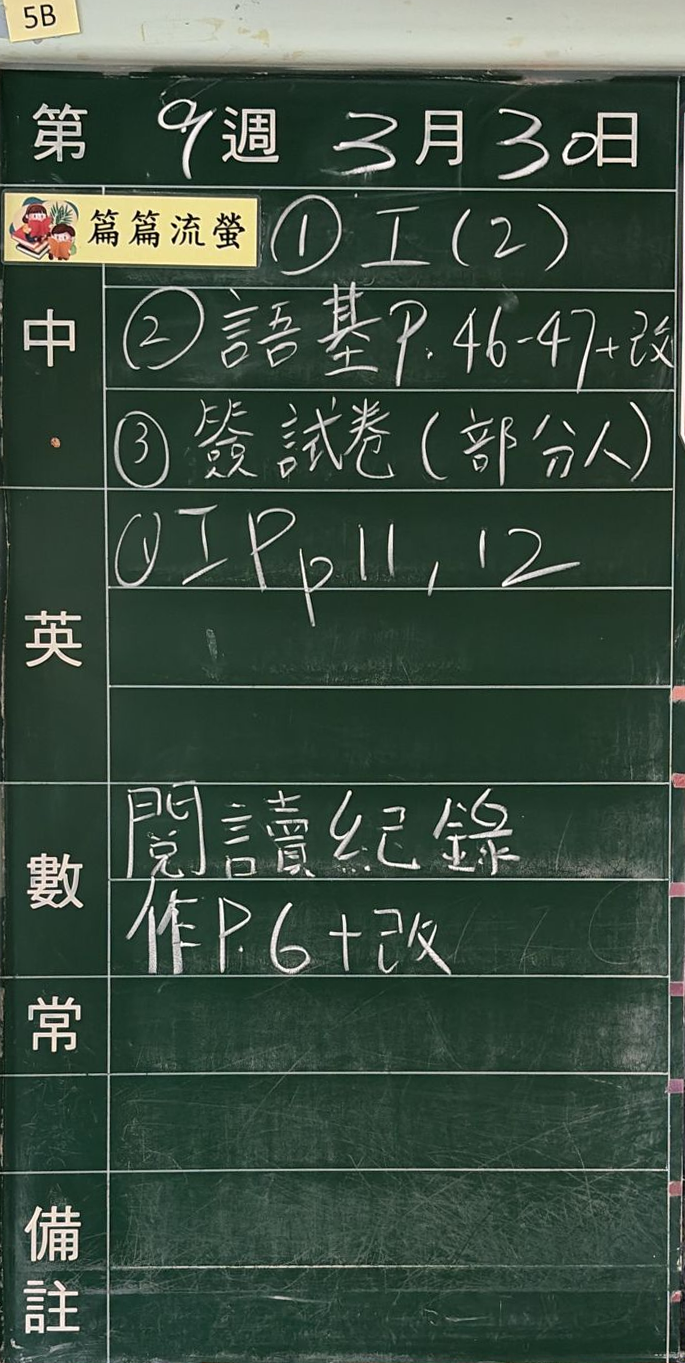 5B
第 9 週 3 月 30 日
篇篇流螢 ① 工(2)
中 ② 語基P.46-47+改
③ 簽試卷(部分人)
英 ① IP p11, 12
數 閱讀紀錄
作P.6+改
常
備註